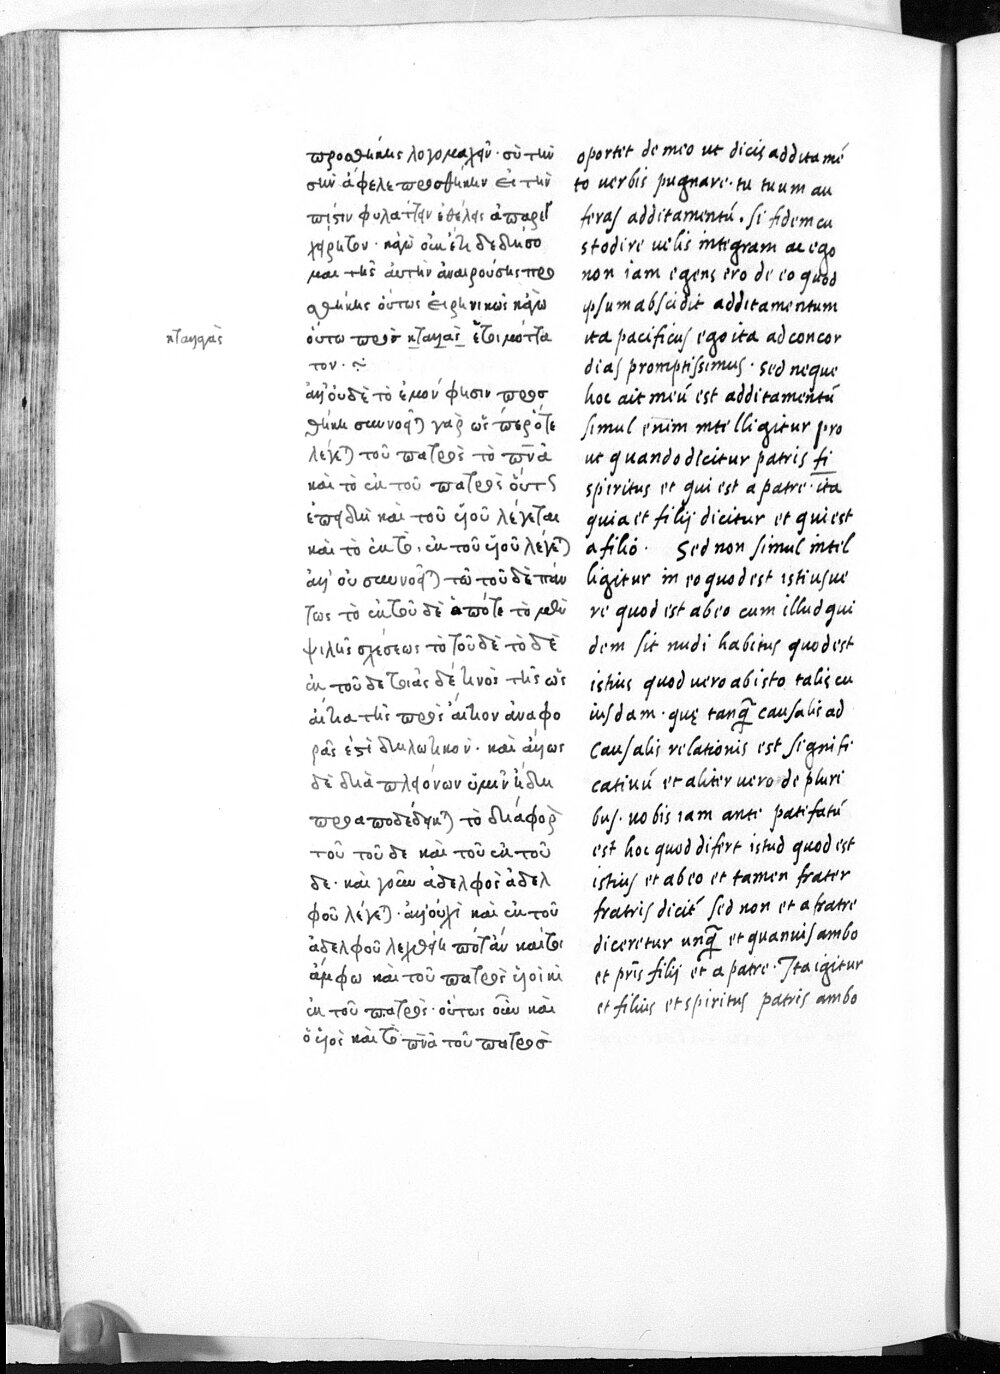 προσθήκης λογομαχεῖν· σὺ τὴν
σὴν ἄφελε προσθήκην εἰ τὴν
πίστιν φυλάττειν ἐθέλεις
μαι τῆς αὐτὴν ἀναιρούσης προ
σθήκης οὕτως εἰρηνικῶς κἀγὼ
οὕτω πρὸς ἑτοιμότα
τον·
ἀλλ' οὐδὲ τὸ ἐμοὶ φησιν προσ
λέγεται τοῦ πατρὸς τὸ πνᾶ
καὶ τὸ ἐκ τοῦ πατρὸς
ἐπειδὴ καὶ τοῦ υἱοῦ λέγεται
καὶ τὸ ἐκ τοῦ υἱοῦ λέγεται
ἀλλ' οὐ συννοεῖται τῶ τοῦδε πάν
τως τὸ ἐκ τοῦδε
ψιλῆς σχέσεως τὸ τοῦδε τὸ δὲ
ἐκ τοῦδε
αἴτια τῆς πρὸς αἴτιον ἀναφο
ρᾶς ἐστὶ δηλωτικόν· καὶ ἄλλως
δὲ διὰ πλειόνων ὑμῖν ἤδη
προαποδέδεικται τὸ διάφορον
τοῦ τοῦδε καὶ τοῦ ἐκ τοῦ
δε· καὶ γοῦν ἀδελφὸς ἀδελ
φοῦ λέγεται· ἀλλ' οὐχὶ καὶ ἐκ τοῦ
ἀδελφοῦ λεχθείη πότ' ἂν καίτοι
ἄμφω καὶ τοῦ πατρὸς υἱοὶ καὶ
ἐκ τοῦ πατρὸς· οὕτως οὖν καὶ
ὁ υἱὸς καὶ τὸ πνᾶ τοῦ πατρὸς
oportet de meo ut dicis additamē
to uerbis pugnare· tu tuum au
feras additamentū. si fidem cu
stodire uelis integram ac ego
non iam egens ero de eo quod
ipsum abscidit additamentum
ita pacificus ego ita ad concor
dias promptissimus· sed neque
hoc ait meū est additamentū
simul enim intelligitur pro
ut quando dicitur patris fi
spiritus et qui est a patre· ita
quia et filij dicitur et qui est
a filio· Sed non simul intel
ligitur in eo quod est istius ue
re quod est ab eo cum illud qui
dem sit nudi habitus quod est
istius quod uero ab isto talis cu
iusdam· quę tanq̄ causalis ad
causalis relationis est signifi
catiuū et aliter uero de pluri
bus· uobis iam ante patefatū
est hoc quod difert istud quod est
istius et ab eo et tamen frater
fratris dicit̄ sed non et a fratre
diceretur unq̄ et quanuis ambo
et pr̄is filij et a patre· Ita igitur
et filius et spiritus patris ambo